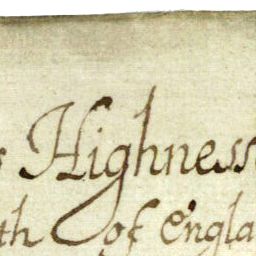 s Highness
th of Engla